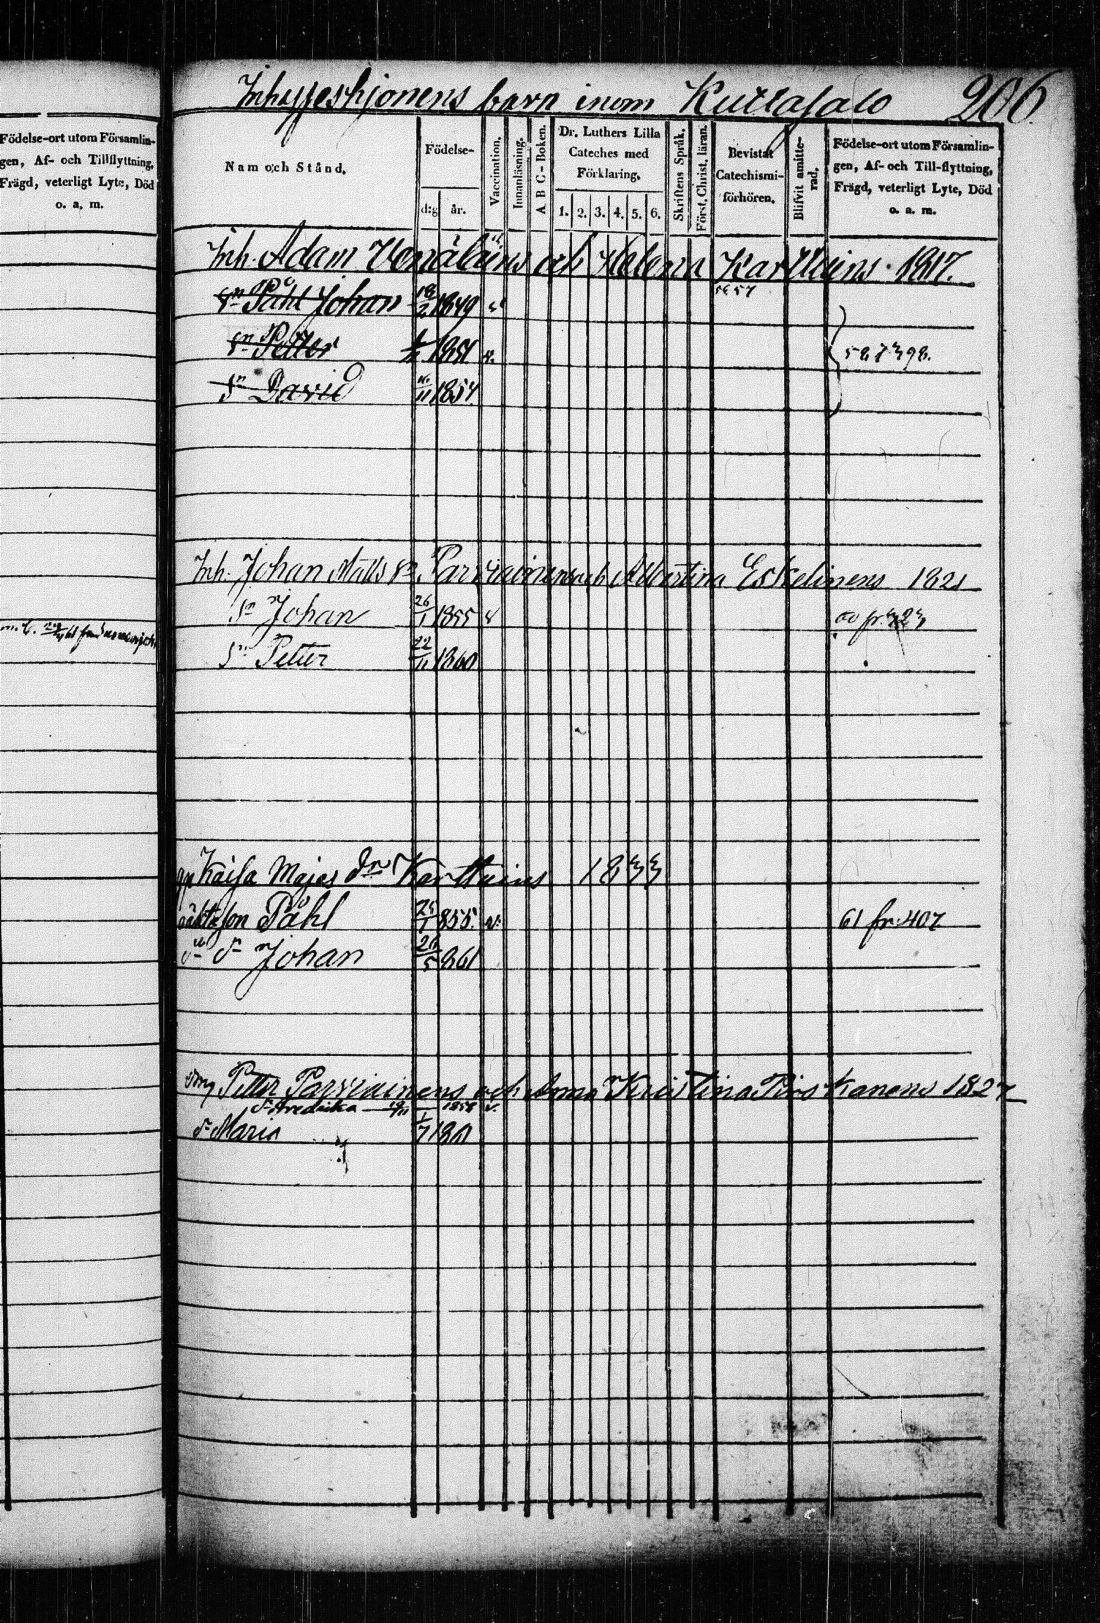 Inhysjeshjonens barn inom Kuttasalo 206
Födelse-ort utom Församlin-
gen, Af- och Tillflyttning,
Frägd, veterligt Lyte, Död
o. a. m.
Nam och Stånd.
Födelse-
d:g år.
Vaccination.
Innanläsning.
A B C - Boken.
Dr. Luthers Lilla
Cateches med
Förklaring.
1. 2. 3. 4. 5. 6.
Skriftens Språk.
Först. Christ. läran.
Bevistat
Catechismi-
förhören.
Blifvit amitte-
rad.
Födelse-ort utom Församlin-
gen, Af- och Till-flyttning,
Frägd, veterligt Lyte, Död
o. a. m.
Inh. Adam och Helena Karttuins 1817.
Sn Påhl Johan 18/2 1849 v
56 57
Sn Petter 1851 v.
58 f 398.
Sn David /11 1854
Inh. Johan Matts Sn Parviainens och Albertina Eskelinens 1821
Sn Johan 26/1 1855 v
60 fr 323
Sn Petter 22/11 1860
Kaisa Majas dn Karttuins 1833
son Påhl 25/1 855. v.
61 fr. 407
Johan 26/5 861
Petter Parviainens och Anna Kristina Pirskanens 1827
Fredrika 1858 v.
Maria 1/7 1861